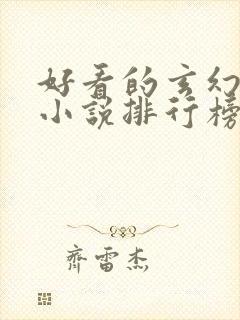 好看的玄幻
小说排行榜
齐雷杰